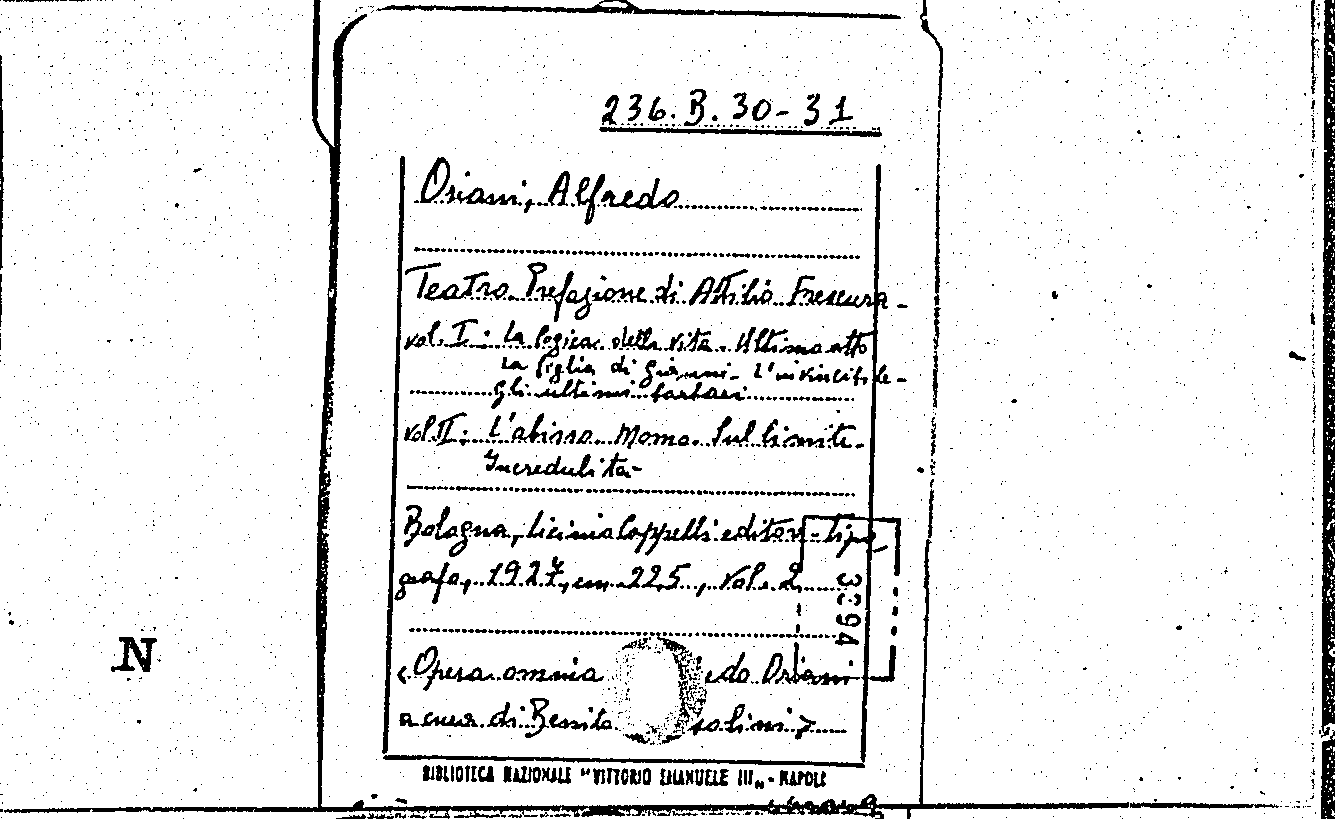 236.B.30-31
Oriani, Alfredo
Teatro. Prefazione di Attilio Frescura -
vol. I: La logica della vita. Ultimo atto
La figlia di Gianni - L'invincibile -
Gli ultimi barbari
vol. II: L'abisso. Momo. Sul limite.
Incredulità -
Bologna, Licinio Cappelli editore - tipo
grafo, 1927, cm. 22,5, vol. 2
3394
«Opera omnia edo Oriani
a cura di Benito solini»
N
BIBLIOTECA NAZIONALE "VITTORIO EMANUELE III„ - NAPOLI